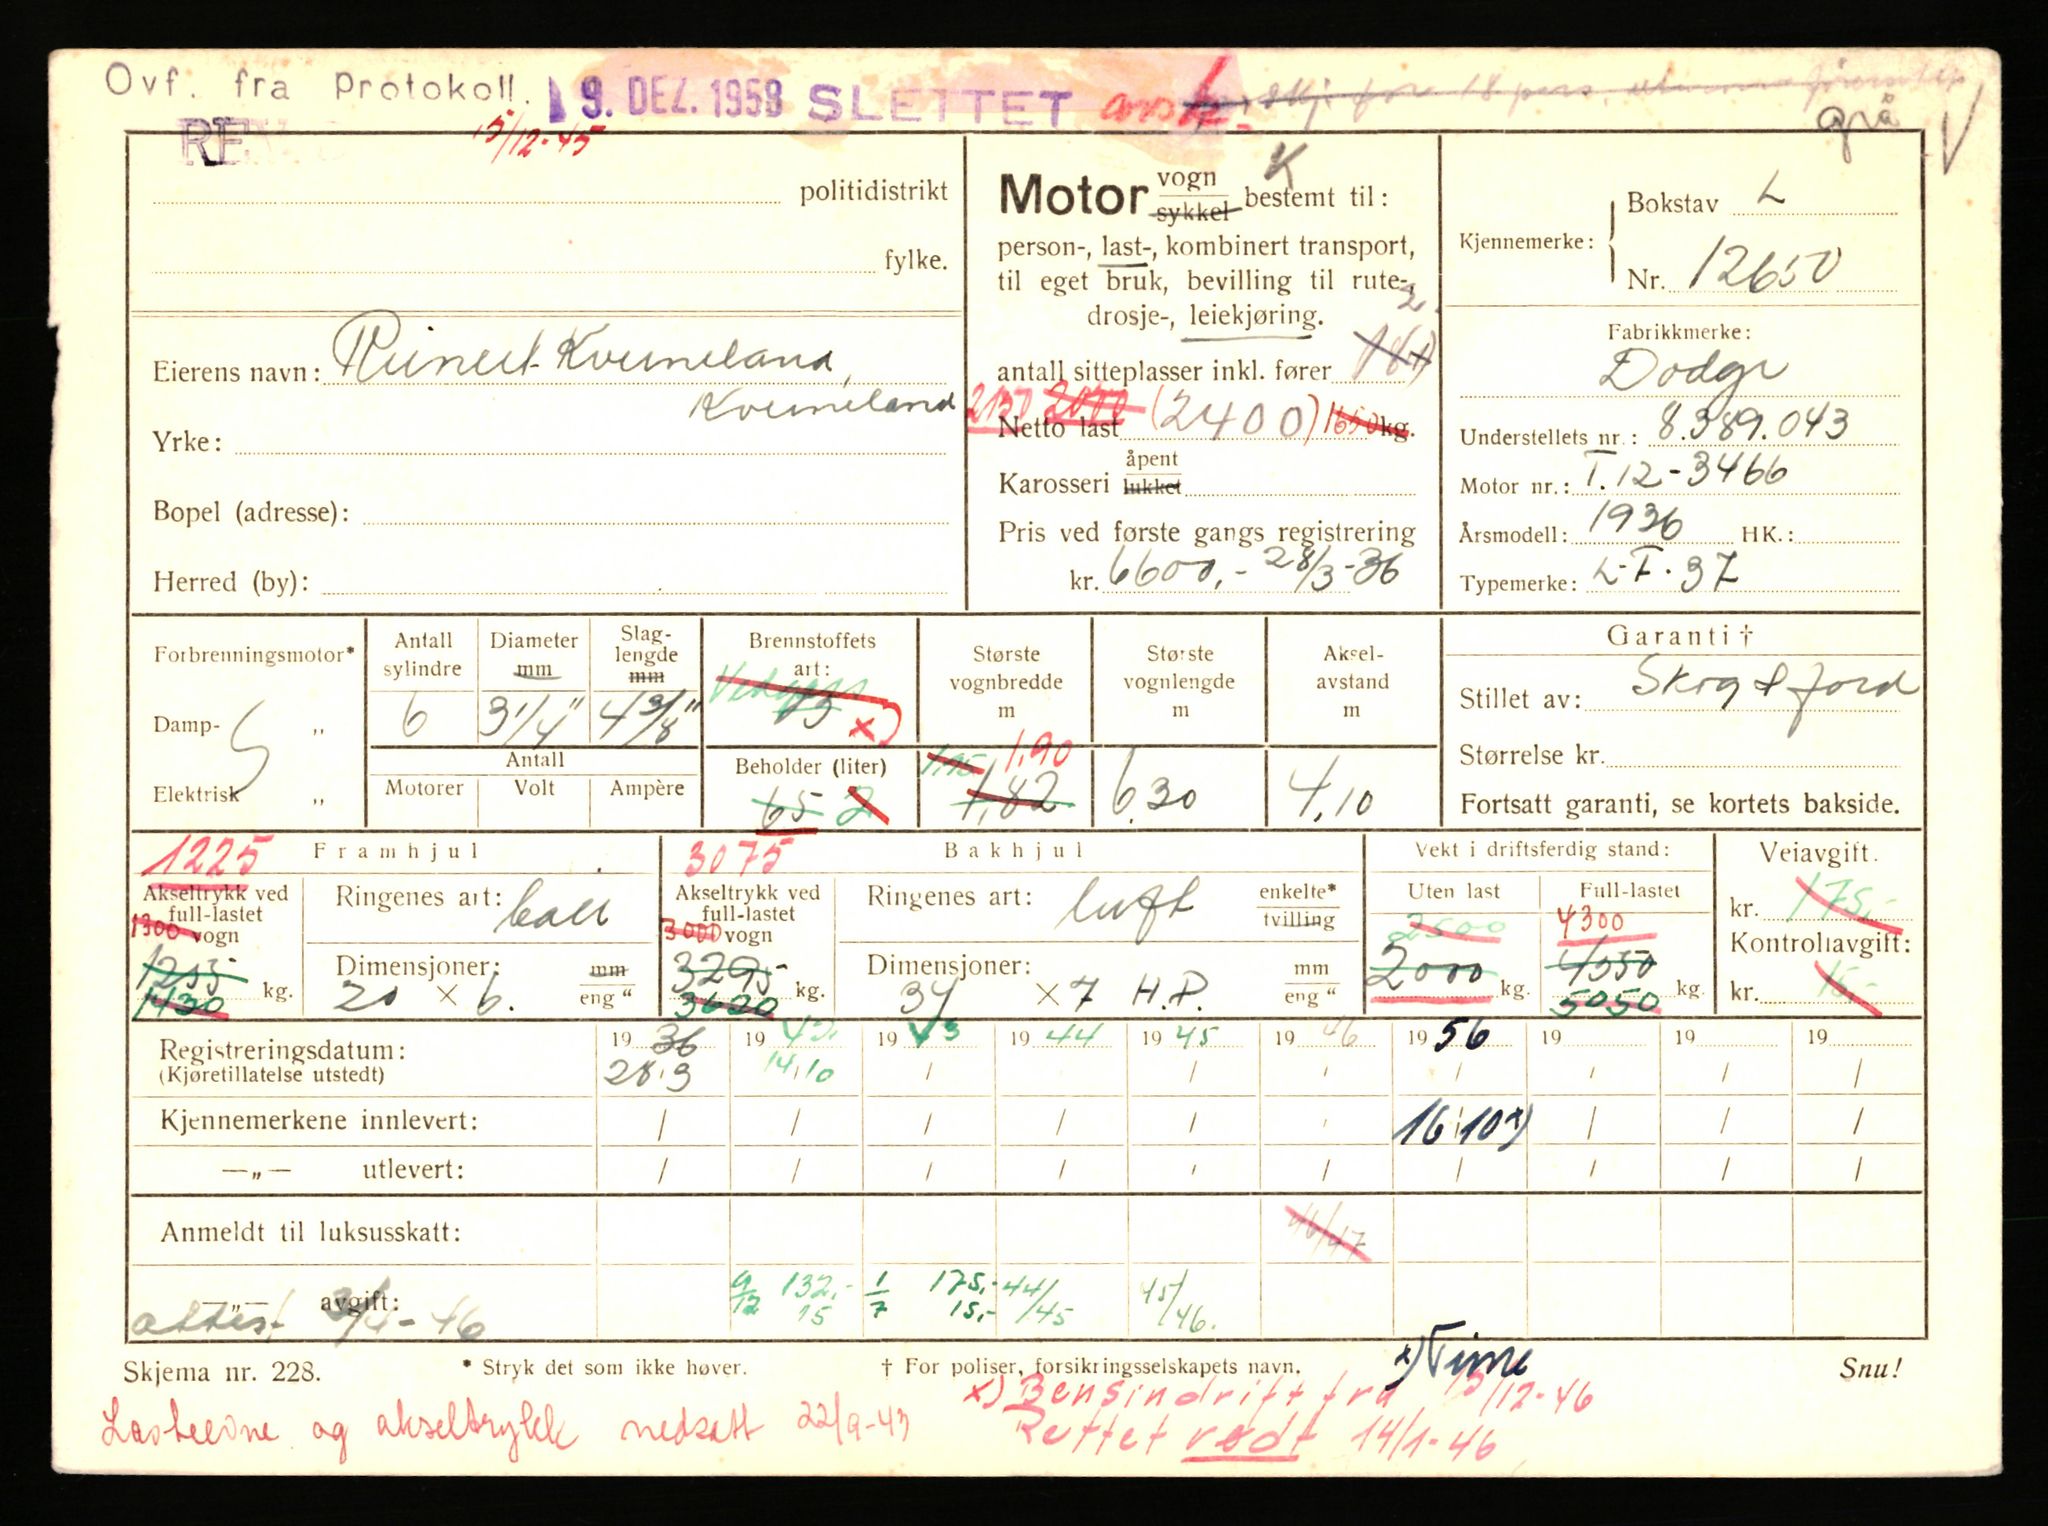 Ovf. fra Protokoll. 19. DEZ. 1958 SLETTET
15/12-45
grå
politidistrikt
fylke.
Eierens navn: Reinert Kverneland,
Kverneland
Yrke:
Bopel (adresse):
Herred (by):
Motor vogn sykkel bestemt til:
person-, last-, kombinert transport,
til eget bruk, bevilling til rute-,
drosje-, leiekjøring. 2
antall sitteplasser inkl. fører
2150 2000 (2400) 1650 kg.
Netto last
Karosseri åpent lukket
Pris ved første gangs registrering
kr. 6600,- 28/3-36
Kjennemerke: Bokstav L
Nr. 12650
Fabrikkmerke:
Dodge
Understellets nr.: 8.389.043
Motor nr.: T.12-3466
Årsmodell: 1936 HK.:
Typemerke: L-F.37
Forbrenningsmotor*
Damp- „
Elektrisk „
Antall sylindre
6
Diameter mm
3 1/4"
Slaglengde mm
4 3/8"
Antall
Motorer Volt Ampère
Brennstoffets art:
Vedgass
B x)
Beholder (liter)
65 2
Største vognbredde m
1,95 1,90
1,82
Største vognlengde m
6,30
Akselavstand m
4,10
Garanti †
Stillet av:
Størrelse kr.
Fortsatt garanti, se kortets bakside.
1225 Framhjul
Akseltrykk ved full-lastet vogn
1300
1255
1430 kg.
Ringenes art: ball
Dimensjoner: mm eng "
20 × 6.
3075 Bakhjul
Akseltrykk ved full-lastet vogn
3000
3295
3620 kg.
Ringenes art: luft enkelte* tvilling
Dimensjoner: mm eng "
34 × 7 H.P.
Vekt i driftsferdig stand:
Uten last Full-lastet
2500 4300
2000 kg. 4550 kg.
5050
Veiavgift.
kr. 175,-
Kontrollavgift:
kr. 15,-
Registreringsdatum: 19 36 19 42 19 43 19 44 19 45 19 46 19 56 19 19 19
(Kjøretillatelse utstedt) 28/3 14/10
Kjennemerkene innlevert: 16/10 x)
—„— utlevert:
Anmeldt til luksusskatt: 46/47
—„— avgift: 9/12 132,- 15 1/7 175,- 15,- 44/45 45/46.
attest 3/4-46
Skjema nr. 228. * Stryk det som ikke høver. † For poliser, forsikringsselskapets navn. x) Time Snu!
Lasteevne og akseltrykk nedsatt 22/9-43
x) Bensindrift fra 15/12-46
Rettet rødt 14/1-46